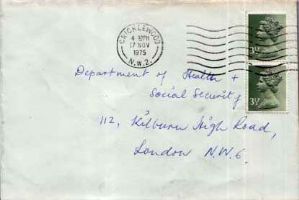 CRICKLEWOOD
4-30PM
17 NOV
1975
N.W.2.
3½
3½
Department of Health +
Social Security
112, Kilburn High Road,
London N.W.6.